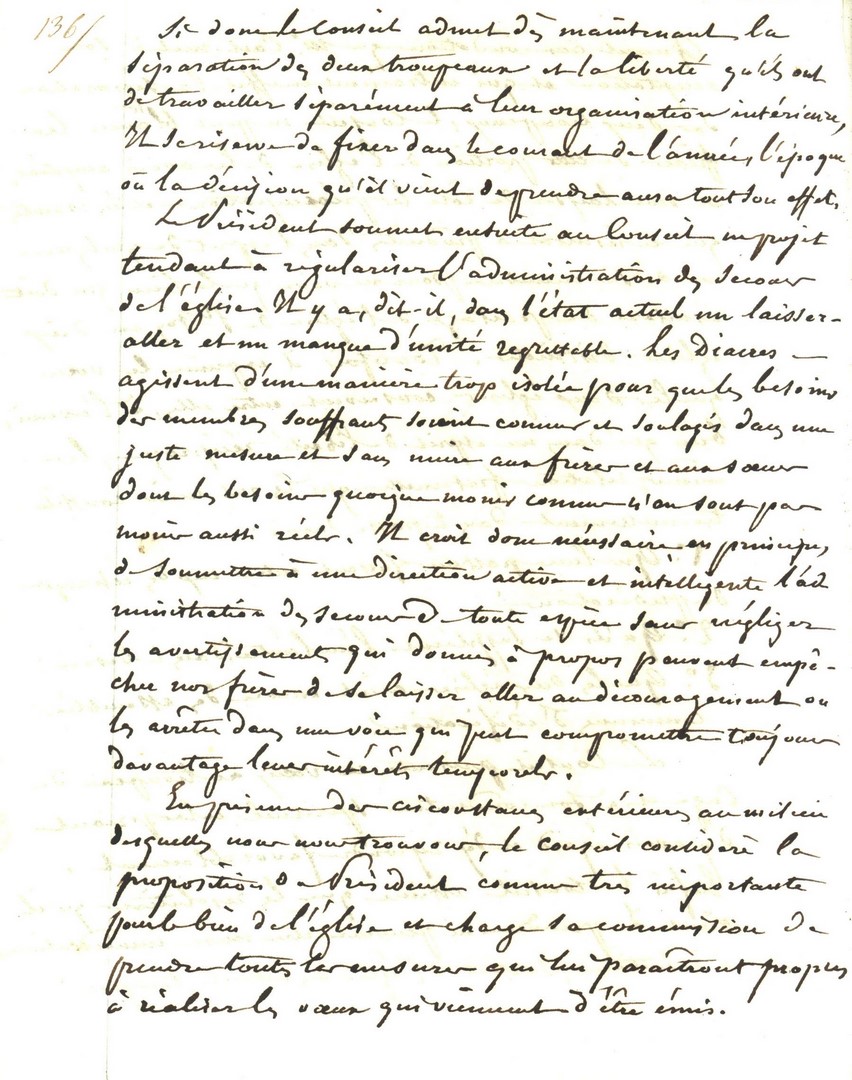 136/
Si donc le Conseil admet dès maintenant la
séparation des deux troupeaux et la liberté qu'ils ont
de travailler séparément à leur organisation intérieure,
Il se réserve de fixer dans le courant de l'année, l'époque
où la décision qu'il vient de prendre aura tout son effet.
Le Président soumet ensuite au Conseil un projet
tendant à régulariser l'administration des secours
de l'église Il y a, dit-il, dans l'état actuel un laisser-
aller et un manque d'unité regrettable. Les Diacres
agissent d'une manière trop isolée pour que les besoins
des membres souffrants soient connus et soulagés dans une
juste mesure et sans nuire aux frères et aux sœurs
dont les besoins quoique moins connus n'en sont pas
moins aussi réels. Il croit donc nécessaire en principe,
de soumettre à une direction active et intelligente l'ad
ministration des secours de toute espèce sans négliger
les avertissements qui donnés à propos peuvent empê-
cher nos frères de se laisser aller au découragement ou
les arrêter dans une voie qui peut compromettre toujours
davantage leurs intérêts temporels.
En présence des circonstances extérieures au milieu
desquelles nous nous trouvons, le Conseil considère la
proposition du Président comme très importante
pour le bien de l'église et charge sa commission de
prendre toutes les mesures qui lui paraîtront propres
à réaliser les vœux qui viennent d'être émis.